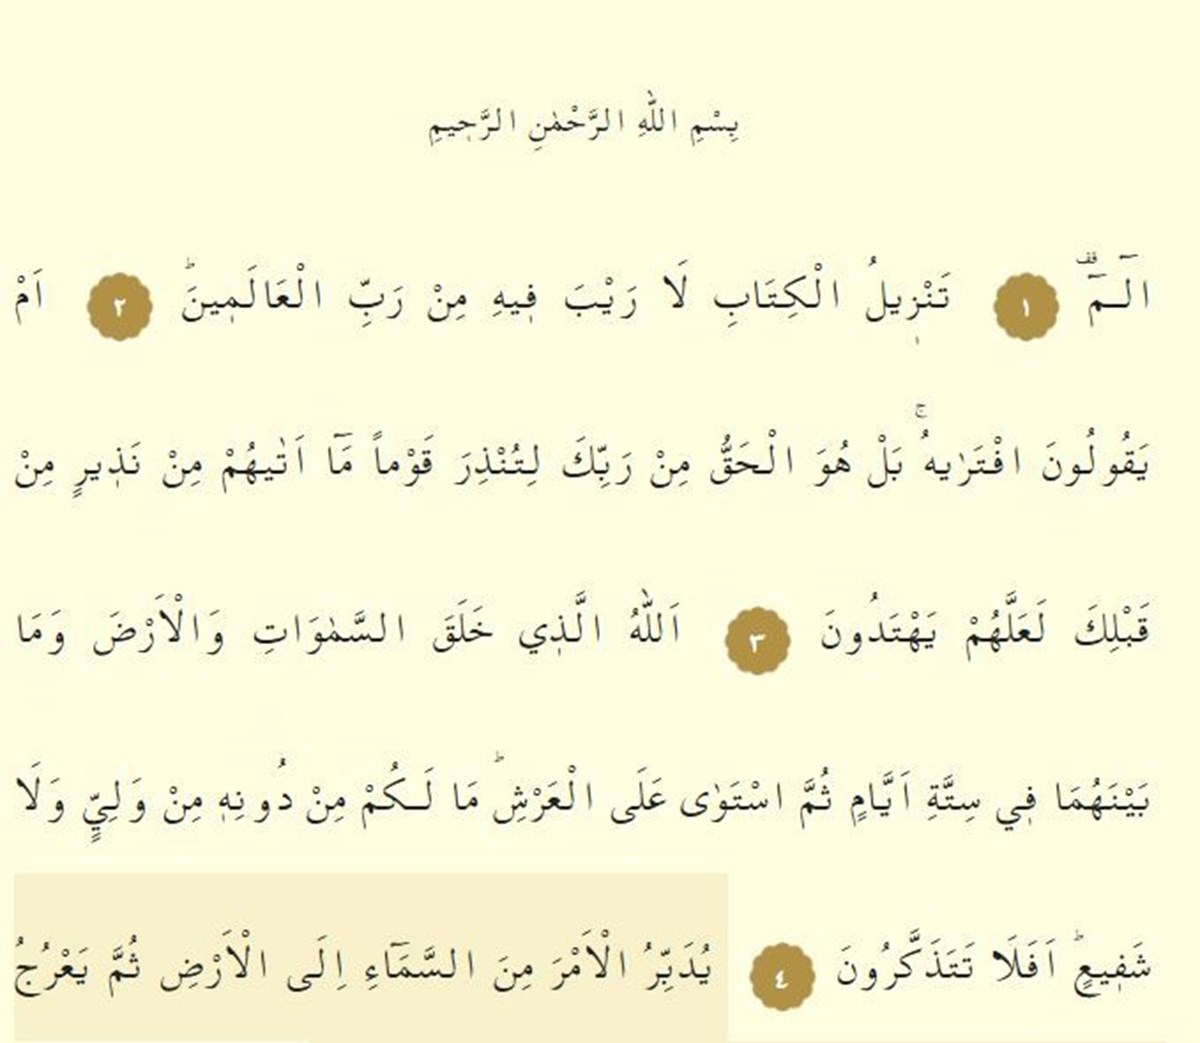 بِسْمِ اللّٰهِ الرَّحْمٰنِ الرَّحٖيمِ
الٓـمٓ ۠ ١ تَنْزٖيلُ الْكِتَابِ لَا رَيْبَ فٖيهِ مِنْ رَبِّ الْعَالَمٖينَؕ ٢ اَمْ
يَقُولُونَ افْتَرٰيهُۚ بَلْ هُوَ الْحَقُّ مِنْ رَبِّكَ لِتُنْذِرَ قَوْماً مَٓا اَتٰيهُمْ مِنْ نَذٖيرٍ مِنْ
قَبْلِكَ لَعَلَّهُمْ يَهْتَدُونَ ٣ اَللّٰهُ الَّذٖي خَلَقَ السَّمٰوَاتِ وَالْاَرْضَ وَمَا
بَيْنَهُمَا فٖي سِتَّةِ اَيَّامٍ ثُمَّ اسْتَوٰى عَلَى الْعَرْشِؕ مَا لَـكُمْ مِنْ دُونِهٖ مِنْ وَلِيٍّ وَلَا
شَفٖيعٍؕ اَفَلَا تَتَذَكَّرُونَ ٤ يُدَبِّرُ الْاَمْرَ مِنَ السَّمَٓاءِ اِلَى الْاَرْضِ ثُمَّ يَعْرُجُ